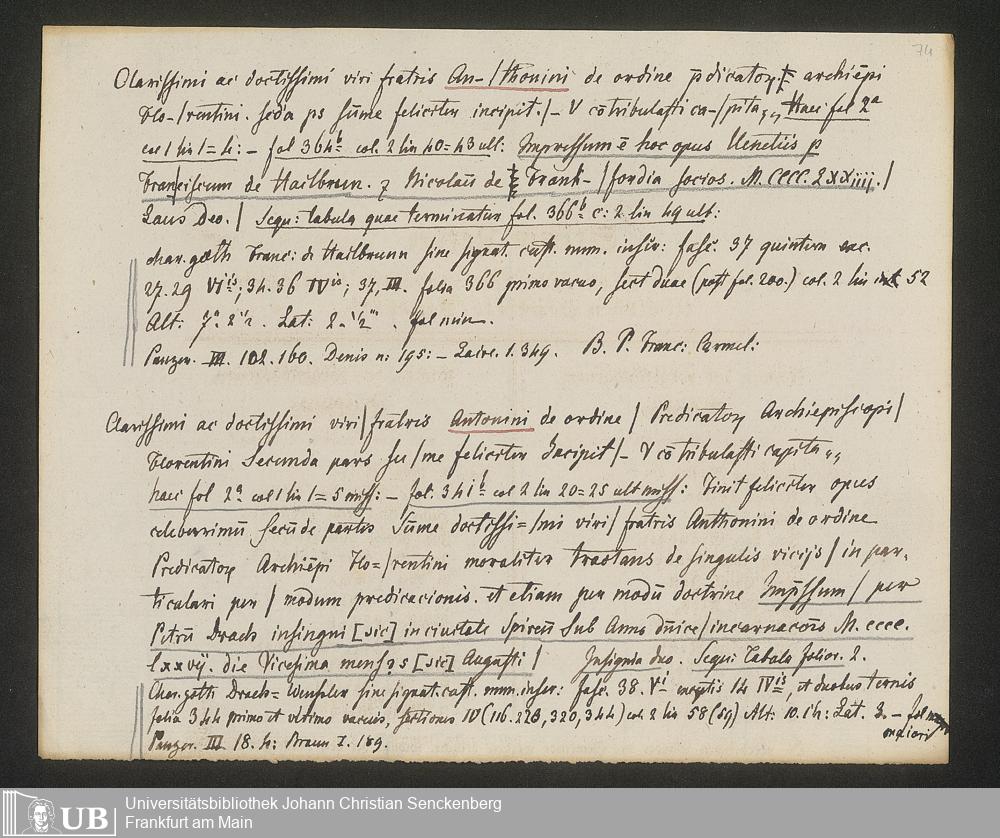 74
Clarissimi ac doctissimi viri fratris An-/thonini de ordine p̄dicatoꝝ archiēpi
Flo-/rentini. seda ps sūme feliciter incipit./- V cōtribulasti ca-/pita,, Haec fol 2ª
col 1 lin 1=4: - fol 364ᵇ col. 2 lin 40=43 ult: Impressum ē hoc opus Venetiis p
Franciscum de Hailbrun. ꝫ Nicolaū de Frank-/fordia socios. M. CCCC. LXXiiij./
Laus Deo. / Sequ: tabula quae terminatur fol. 366ᵇ c: 2 lin 49 ult:
char. goth Franc: de Hailbrunn sine signat. cust. num. insir: fasc. 37 quintern exc.
27. 29 VIⁱˢ; 34. 36 IVⁱˢ; 37, III. folia 366 primo vacuo, sect duae (post fol. 200.) col. 2 lin 52
Alt: 7" 2'". Lat: 2 "½"' . fol min.
Panzer. III. 102. 160. Denis n: 195: - Laire. 1. 349. B. P. Franc: Carmel:
Clarissimi ac doctissimi viri/ fratris Antonini de ordine / Predicatoꝝ Archiepiscopi/
Florentini Secunda pars su/me feliciter Incipit/- V cō tribulasti capita,,
haec fol 2ª col 1 lin 1=5 miss: - fol. 341ᵇ col 2 lin 20=25 ult miss: Finit feliciter opus
celeberrimū secūde partis Sūme doctissi=/mi viri/ fratris Anthonini de ordine
Predicatoꝝ Archiēpi Flo=/rentini moraliter tractans de singulis vicijs/ in par-
ticulari per / modum predicacionis. et etiam per modū doctrine Imp̄ssum / per
Petrū Drach insingni [sic] in ciuitate Spireñ Sub Anno dn̄ice/ incarnacōis M. cccc.
lxxvij. die Vicesima mensꝫs [sic] Augusti / Insignia duo. Sequi Tabula folior. 2.
Char. goth Drach= Wensler sine signat. cust. num. inser: fasc. 38. Vⁱ exceptis 14 IVⁱˢ, et duobus ternis
folia 344 primo et ultimo vacuis, sectiones IV (116. 228, 320, 344) col. 2 lin 58 (59) Alt: 10. 1'h: Lat. 3. - fol
Panzer. III 18. 4: Braun I. 189.
Universitätsbibliothek Johann Christian Senckenberg
Frankfurt am Main
UB